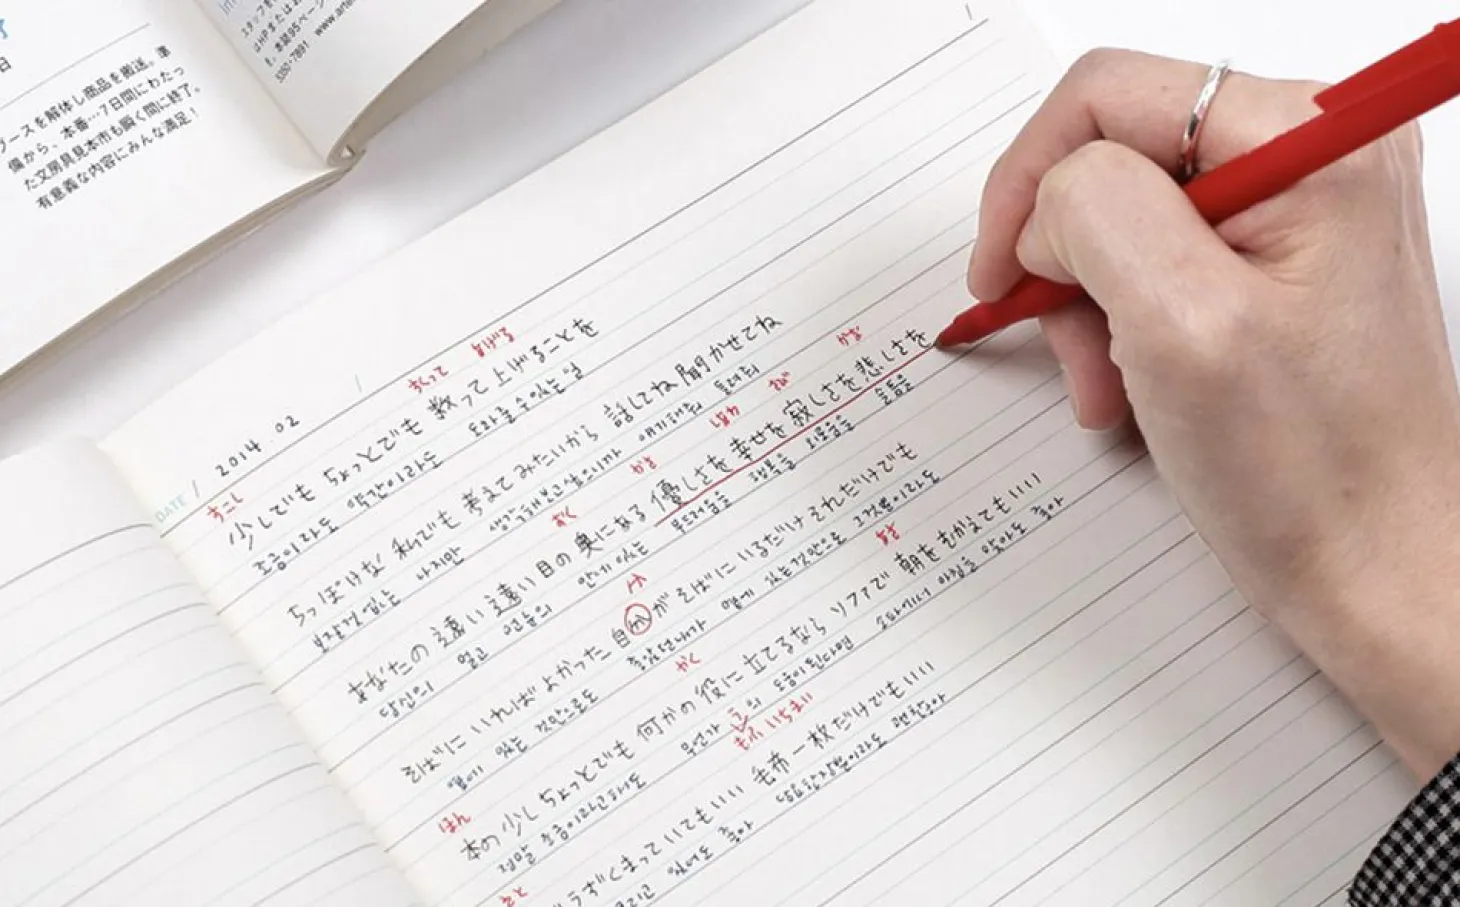 日
ブースを解体し商品を搬送。準
備から、本番…7日間にわたっ
た文房具見本市も瞬く間に終了。
有意義な内容にみんな満足！
も。本誌95ページ
5350-7891 www.arte
DATE / 2014.02 / /
すこし すくって あげる
少しでも ちょっとでも 救って上げることを
조금이라도 약간이라도 도와줄 수 있는 일
ちっぽけな 私でも 考えてみたいから 話してね 聞かせてね
보잘것 없는 나지만 생각해보고 싶으니까 얘기해줘 들려줘
おく しあわ かな
あなたの 遠い 遠い 目の 奥にある 優しさを 幸せを 寂しさを 悲しさを
당신의 멀고 먼 눈의 안에 있는 부드러움을 행복을 외로움을 슬픔을
そばに いれば よかった 自分が そばに いるだけ それだけでも
옆에 있는 것만으로도 좋았던 내가 옆에 있는 것만으로 그것뿐이라도
ほん やく
本の少し ちょっとでも 何かの役に 立てるなら ソファで 朝を むかえても いい
정말 조금이라고해도 무언가의 도움이 된다면 소파에서 아침을 맞아도 좋아
もうふ いちまい
うずくまっていてもいい 毛布一枚だけでもいい
있어도 좋아 담요 한장뿐이라도 괜찮아